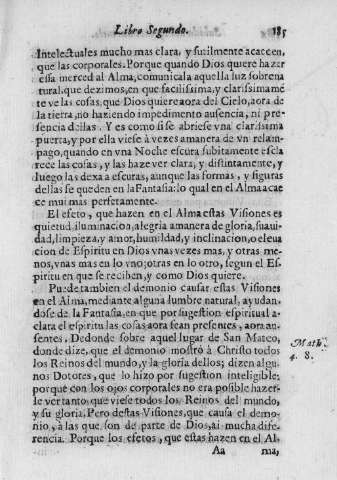 Libro Segundo. 185
Intelectuales mucho mas clara, y sutilmente acaecen,
que las corporales. Porque quando Dios quiere hazer
essa merced al Alma, comunicala aquella luz sobrena
tural, que dezimos, en que facilissima, y clarissimame
te ve las cosas, que Dios quiere aora del Cielo, aora de
la tierra, no haziendo impedimento ausencia, ni pre
sencia dellas. Y es como si se abriese vna clarissima
puerta, y por ella viese à vezes amanera de vn relam-
pago, quando en vna Noche escura subitamente escla
rece las cosas, y las haze ver clara, y distintamente, y
luego las dexa a escuras, aunque las formas, y figuras
dellas se queden en la Fantasia: lo qual en el Alma acae
ce mui mas perfetamente.
El efeto, que hazen en el Alma estas Visiones es
quietud, iluminacion, alegria amanera de gloria, suaui-
dad, limpieza, y amor, humildad, y inclinacion, o eleua
cion de Espiritu en Dios vnas vezes mas, y otras me-
nos, vnas mas en lo vno, otras en lo otro, segun el Es-
piritu en que se reciben, y como Dios quiere.
Puede tambien el demonio causar estas Visiones
en el Alma, mediante alguna lumbre natural, ayudan-
dose de la Fantasia, en que por sugestion espiritual a-
clara el espiritu las cosas aora sean presentes, aora au-
sentes. Dedonde sobre aquel lugar de San Mateo,
donde dize, que el demonio mostrò à Christo todos
los Reinos del mundo, y la gloria dellos; dizen algu-
nos Dotores, que lo hizo por sugestion inteligible;
porque con los ojos corporales no era posible hazer-
le ver tanto, que viese todo los Reinos del mundo,
y su gloria. Pero destas Visiones, que causa el demo-
nio, à las que son de parte de Dios, ai mucha dife-
rencia. Porque los efetos, que estas hazen en el Al-
Aa ma,
Math.
4. 8.